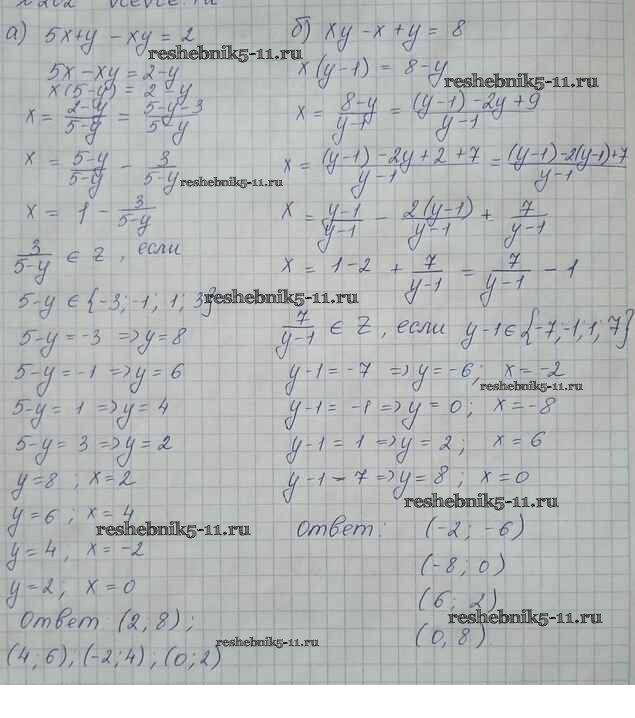 а) 5x+y - xy = 2
5x - xy = 2-y
x(5-y) = 2-y
x = 2-y/5-y = 5-y-3/5-y
x = 5-y/5-y - 3/5-y
x = 1 - 3/5-y
3/5-y ∈ Z, если
5-y ∈ {-3; -1; 1; 3}
5-y = -3 ⇒ y = 8
5-y = -1 ⇒ y = 6
5-y = 1 ⇒ y = 4
5-y = 3 ⇒ y = 2
y = 8; x = 2
y = 6; x = 4
y = 4, x = -2
y = 2; x = 0
Ответ: (2; 8);
(4; 6); (-2; 4); (0; 2)
б) xy - x + y = 8
x(y-1) = 8-y
x = 8-y/y-1 = (y-1)-2y+9/y-1
x = (y-1)-2y+2+7/y-1 = (y-1)-2(y-1)+7/y-1
x = y-1/y-1 - 2(y-1)/y-1 + 7/y-1
x = 1-2 + 7/y-1 = 7/y-1 - 1
7/y-1 ∈ Z, если y-1 ∈ {-7; -1; 1; 7}
y-1 = -7 ⇒ y = -6; x = -2
y-1 = -1 ⇒ y = 0; x = -8
y-1 = 1 ⇒ y = 2; x = 6
y-1 - 7 ⇒ y = 8; x = 0
Ответ: (-2; -6)
(-8; 0)
(6; 2)
(0, 8)
reshebnik5-11.ru
reshebnik5-11.ru
reshebnik5-11.ru
reshebnik5-11.ru
reshebnik5-11.ru
reshebnik5-11.ru
reshebnik5-11.ru
reshebnik5-11.ru
reshebnik5-11.ru